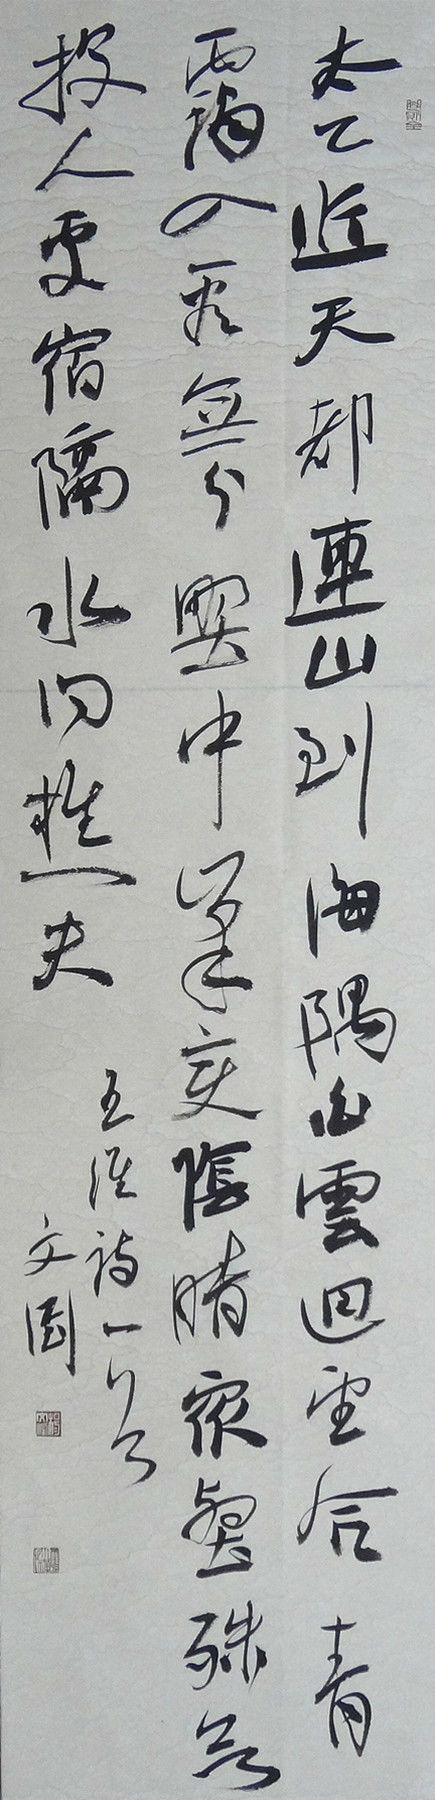 太乙近天都連山到海隅白雲迴望合青
靄入看無分野中峯變陰晴衆壑殊欲
投人處宿隔水問樵夫
王維詩一首
文國